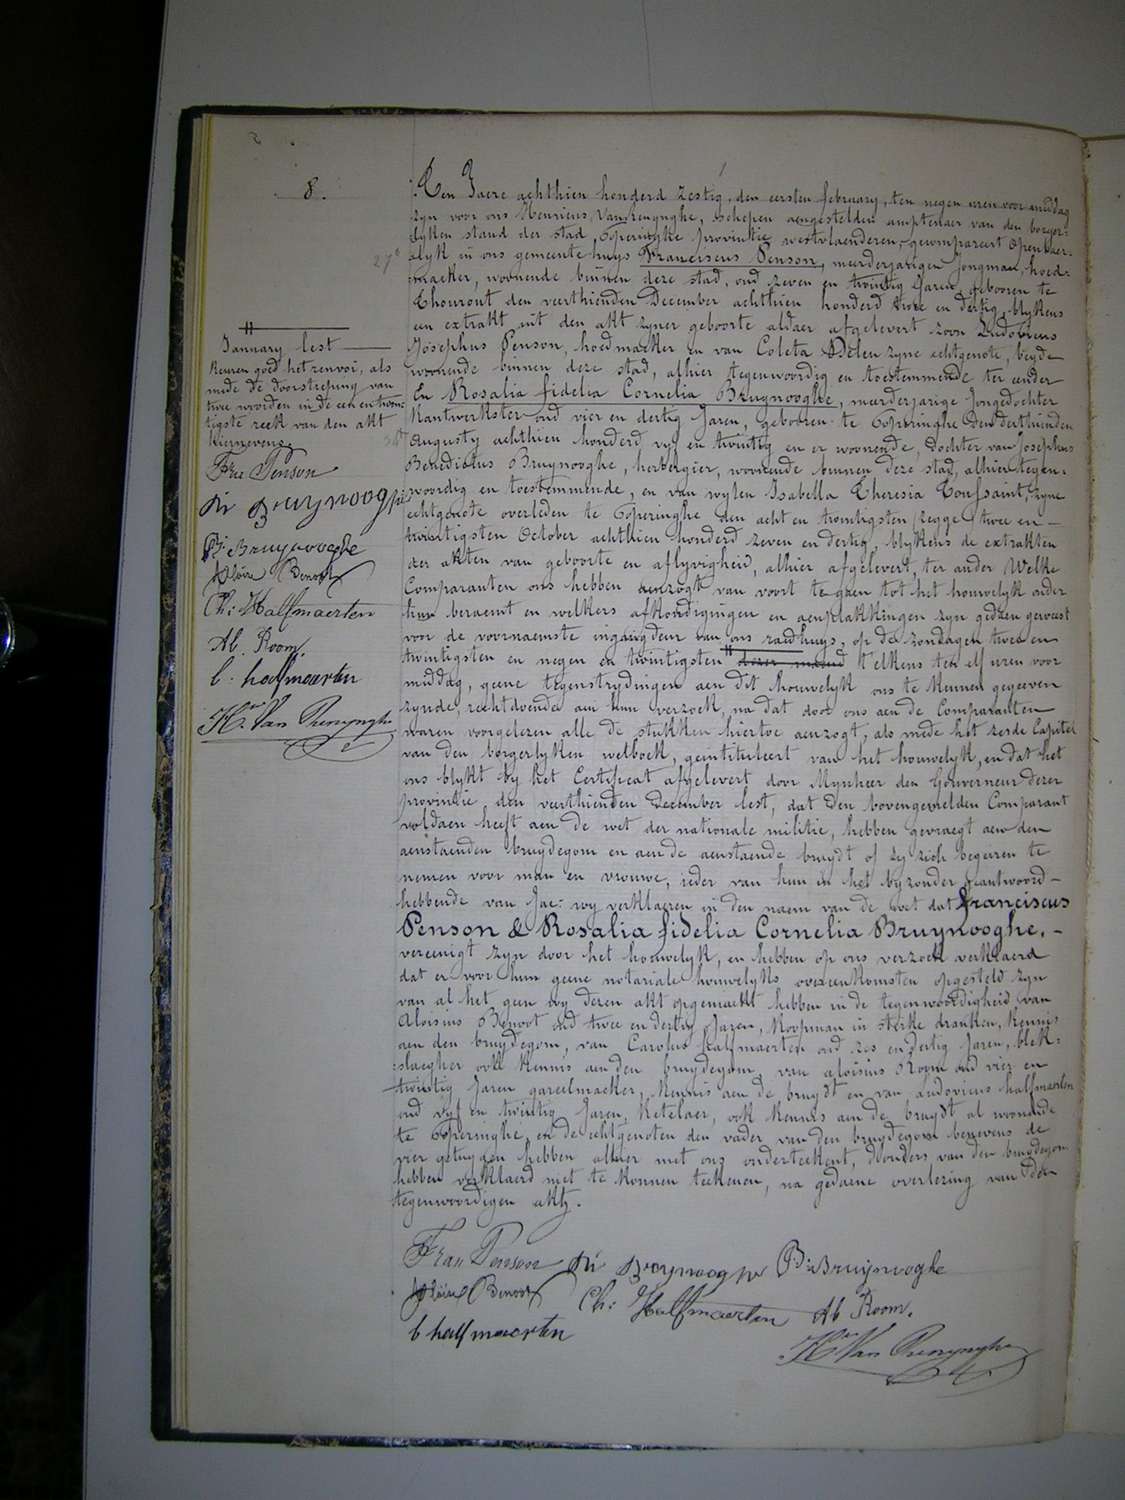 8.
Ten Jaere achthien honderd zestig, den eersten february, ten negen uren voor middag
zyn voor ons Henricus Vanrenynghe, schepen aengestelden amptenaer van den borger-
lyken stand der stad Poperinghe provintie westvlaenderen, gecompareert openbaer-
lyk in ons gemeente huys Franciscus Penson, meerderjarigen jongman, hoed-
maeker, woonende binnen deze stad, oud zeven en twintig Jaren, gebooren te
Thourout den veerthienden December achthien honderd twee en dertig, blykens
een extrakt uit den akt zyner geboorte aldaer afgelevert zoon Ludovicus
Josephus Penson, hoedmaeker en van Coleta Delen zyne echtgenote, beyde
woonende binnen deze stad, alhier tegenwoordig en toestemmende ter eender
En Rosalia fidelia Cornelia Bruynooghe, meerderjarige Jongedochter
Kantwerkster oud vier en dertig Jaren, gebooren te Poperinghe den derthienden
augusty achthien honderd vyf en twintig en er woonende, Dochter van Josephus
Benedictus Bruynooghe, herbergier, woonende binnen deze stad, alhier tegen-
woordig en toestemmende, en van wylen Isabella Theresia Toussaint, zyne
echtgenote overleden te Poperinghe den acht en twintigsten zegge twee en
twintigsten October achthien honderd zeven en dertig, blykens de extrakten
der akten van geboorte en aflyvigheid, alhier afgelevert, ter ander Welke
Comparanten ons hebben aenzogt van voort te gaen tot het houwelyk onder
hun beraemt en welkers afkondigingen en aenplakkingen zyn gedaen geweest
voor de voornaemste ingangdeur van ons raedhuys, op de zondagen twee en
twintigsten en negen en twintigsten dezer maend telkens ten elf uren voor
middag, geene tegenstrydingen aen dit houwelyk ons te kennen gegeeven
zynde, rechtdoende aen hun verzoek, na dat door ons aen de Comparanten
waren voorgelezen alle de stukken hiertoe aenzogt, als mede het zesde Capitel
van den borgerlyken wetboek, geintituleert van het houwelyk, en dat het
ons blykt by het Certificat afgelevert door Mynheer den Gouverneur dezer
provintie den veerthienden December lest, dat den bovengemelden Comparant
voldaen heeft aen de wet der nationale militie, hebben gevraegt aen den
aenstaenden bruydegom en aen de aenstaende bruydt of zy zich begeeren te
nemen voor man en vrouwe, ieder van hun in het byzonder geantwoord
hebbende van Jae: wy verklaeren in den naem van de wet dat Franciscus
Penson & Rosalia fidelia Cornelia Bruynooghe,
vereenigt zyn door het houwelyk, en hebben op ons verzoek verklaerd
dat er voor hun geene notariale houwelyks overeenkomsten opgesteld zyn
van al het geen wy dezen akt opgemaekt hebben in de tegenwoordigheid van
Aloisius Benoot oud twee en dertig Jaren, Koopman in sterke dranken, kennis
aen den bruydegom, van Carolus halfmaerten oud zes en dertig Jaren, blek-
slaegher ook kennis aen den bruydegom, van aloisius Room oud vier en
twintig Jaren gareelmaeker, kennis aen de bruydt en van Ludovicus halfmaerten
oud vyf en twintig Jaren, Ketelaer, ook kennis aen de bruydt al woonende
te Poperinghe, en de echtgenoten den vader van den bruydegom benevens de
vier getuygen hebben alhier met ons onderteekent, d'ouders van den bruydegom
hebben verklaerd niet te konnen teekenen, na gedaene overlezing van den
tegenwoordigen akt.
January lest
Keuren goed het renvoi, als
mede de doorstreping van
twee woorden in de een en twin-
tigste reek van den akt
hiernevens.
Fra Penson
Ri Bruynooghe
B: Bruynooghe
Aloise Benoot
Ch: Halfmaerten
Al. Room.
L. halfmaerten
Hri Van Renynghe
Fran Penson Ri Bruynooghe B: Bruynooghe
Aloise Benoot Ch: Halfmaerten Al Room.
L halfmaerten
Hri Van Renynghe